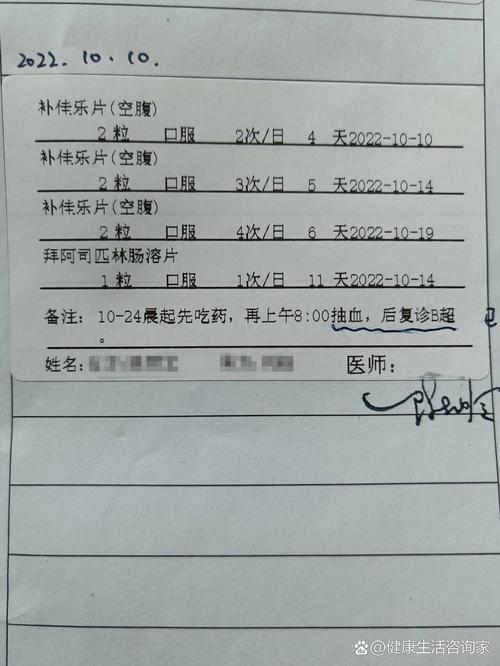 2022.10.10.
补佳乐片(空腹)
2粒 口服 2次/日 4 天2022-10-10
补佳乐片(空腹)
2粒 口服 3次/日 5 天2022-10-14
补佳乐片(空腹)
2粒 口服 4次/日 6 天2022-10-19
拜阿司匹林肠溶片
1粒 口服 1次/日 11 天2022-10-14
备注: 10-24晨起先吃药，再上午8:00抽血，后复诊B超
。
姓名: 医师:
@健康生活咨询家